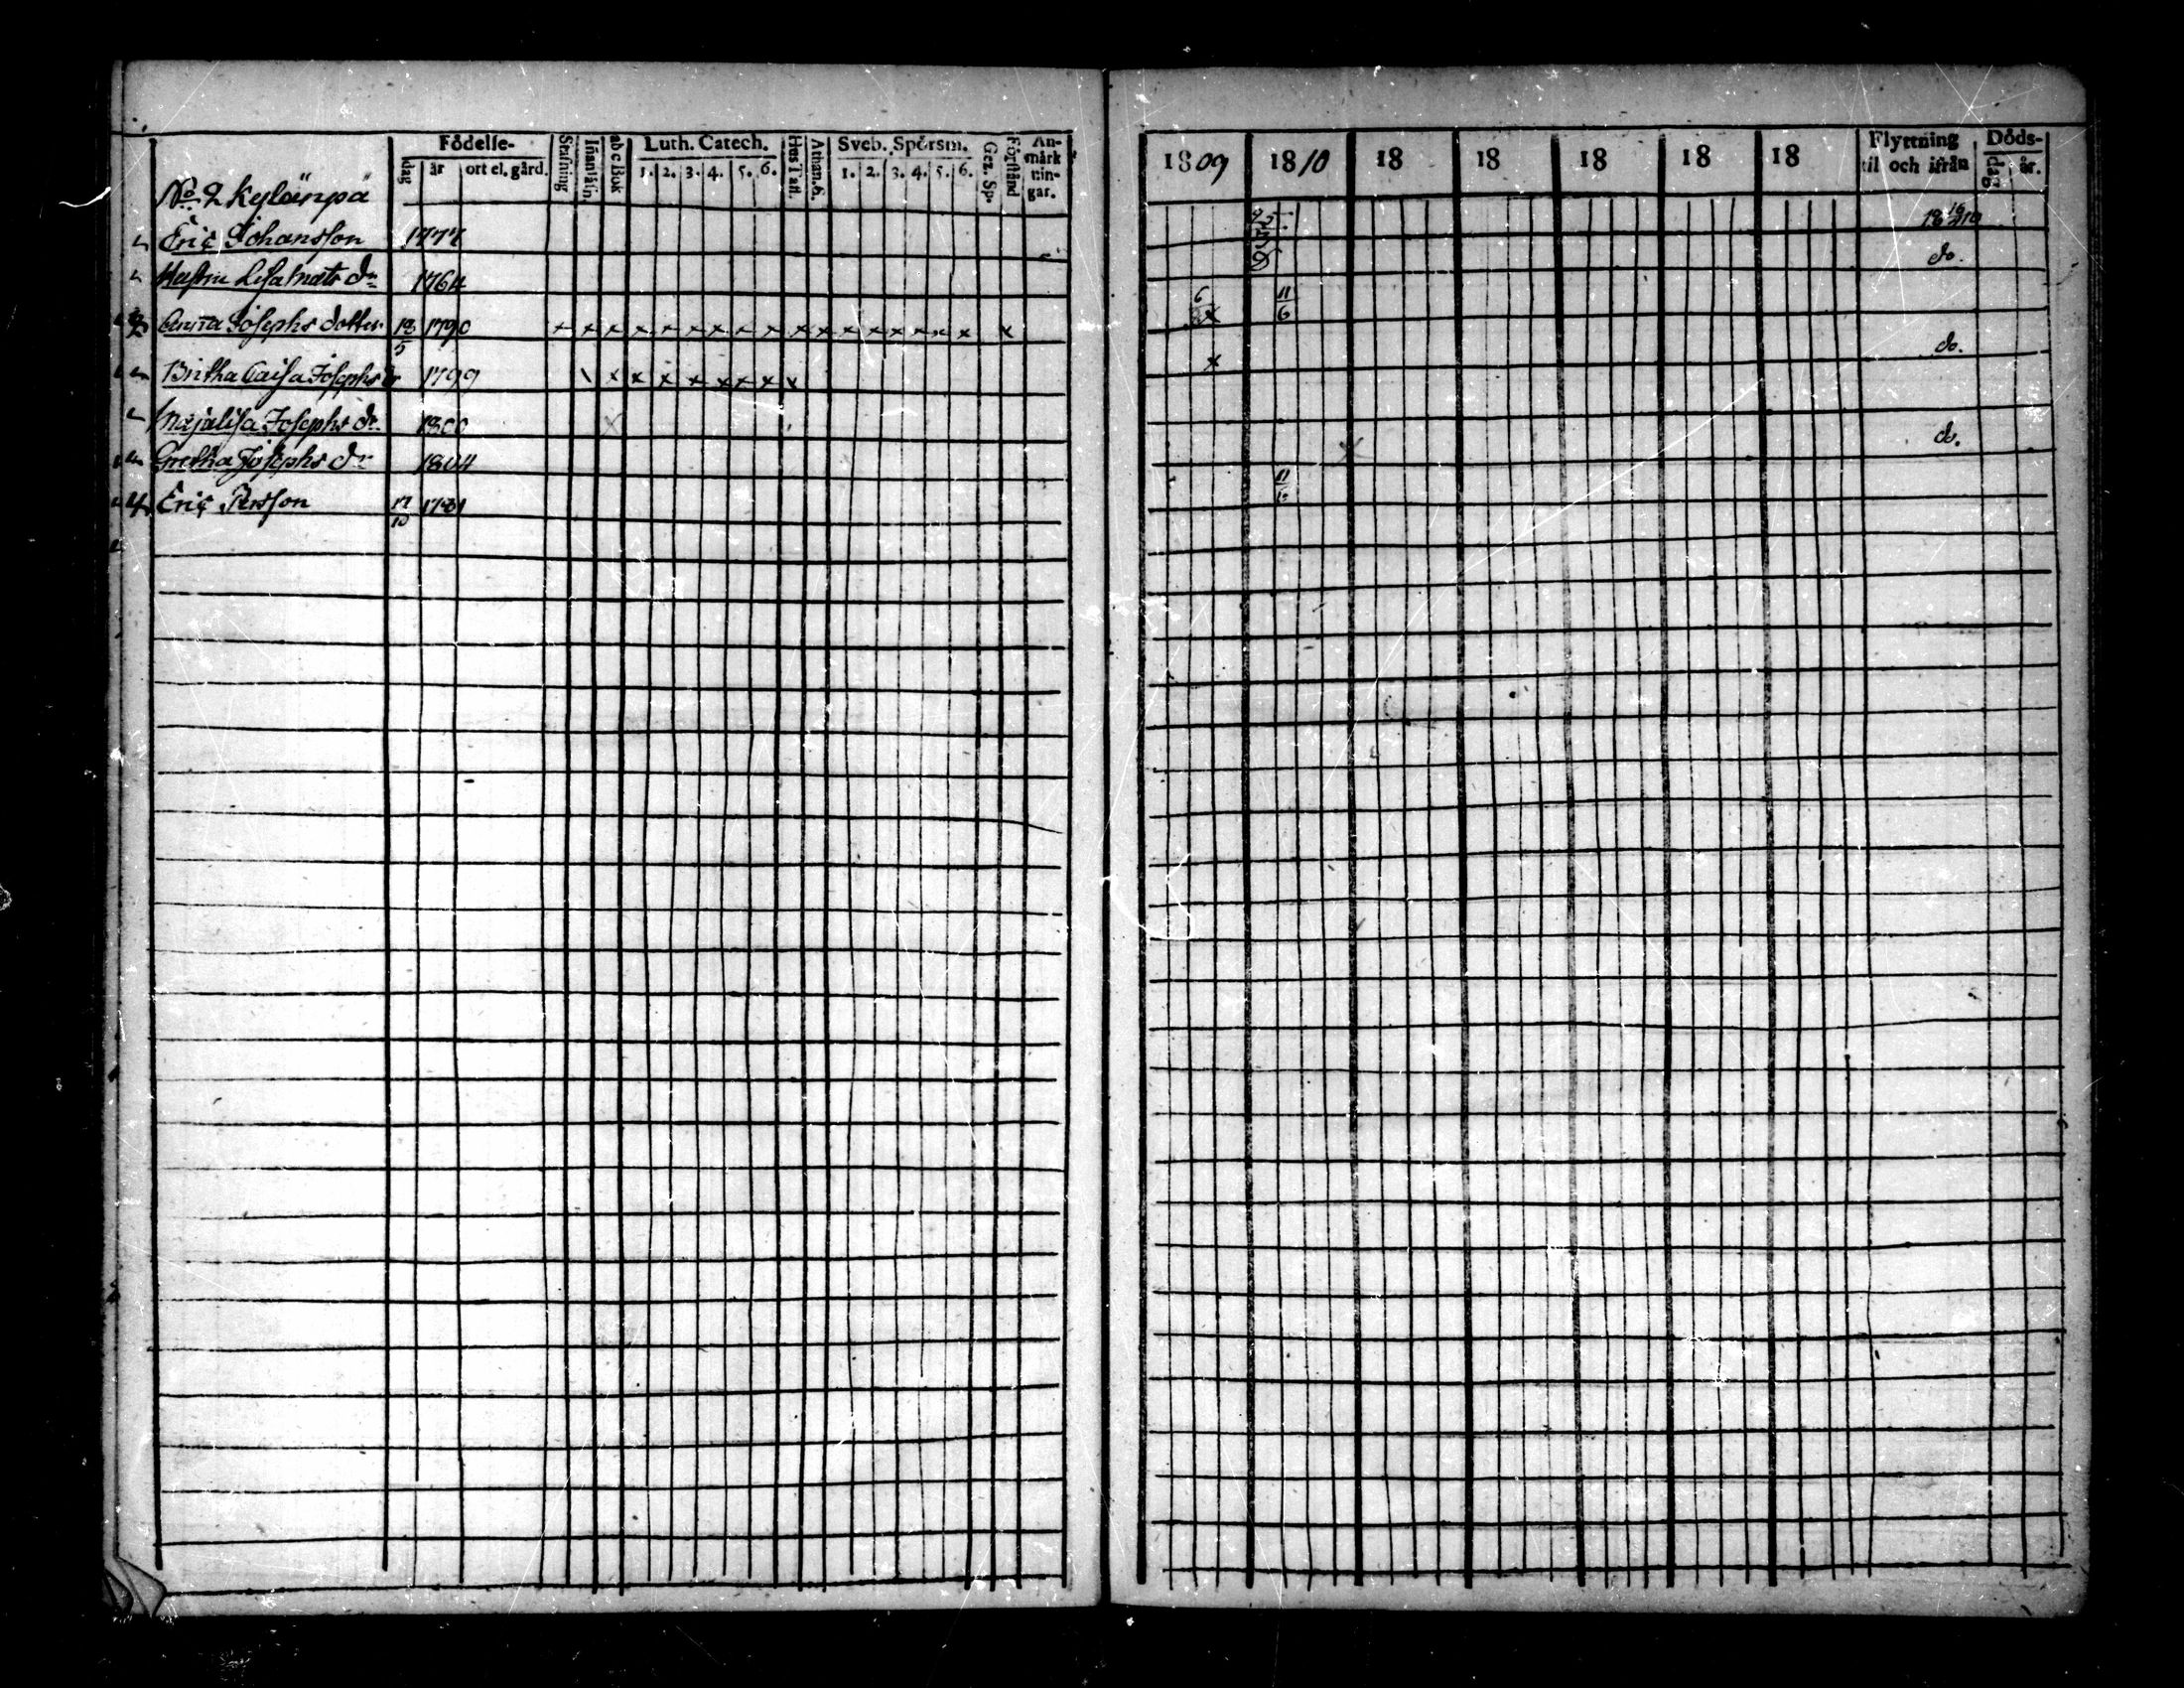 Födelse-
dag
år
ort el. gård.
Stafning
Iñanläsn
abcBok
Luth. Catech.
1. 2. 3. 4. 5. 6.
HusTafl.
Athan. 6.
Sveb. Spörsm.
1. 2. 3. 4. 5. 6.
Gez. Sp.
Förstånd
An-
märk
nin-
gar.
1809 1810 18 18 18 18 18
Flyttning
til och ifrån
Döds-
dag
år.
No 2 Kylänpä
Eric Johansson 1777
Hustru Lisa Mats dr 1764 do.
Anna Josephs dotter 12/5 1790 x x x x x x x x x x x x x x x x x x 6 x 11/6
Britha Caisa Josephs dr 1799 x x x x x x x x x do.
Majalisa Josephs dr 1800 x
Gretha Josephs dr 1804 x do.
4. Eric Persson 17/10 1781 11/6